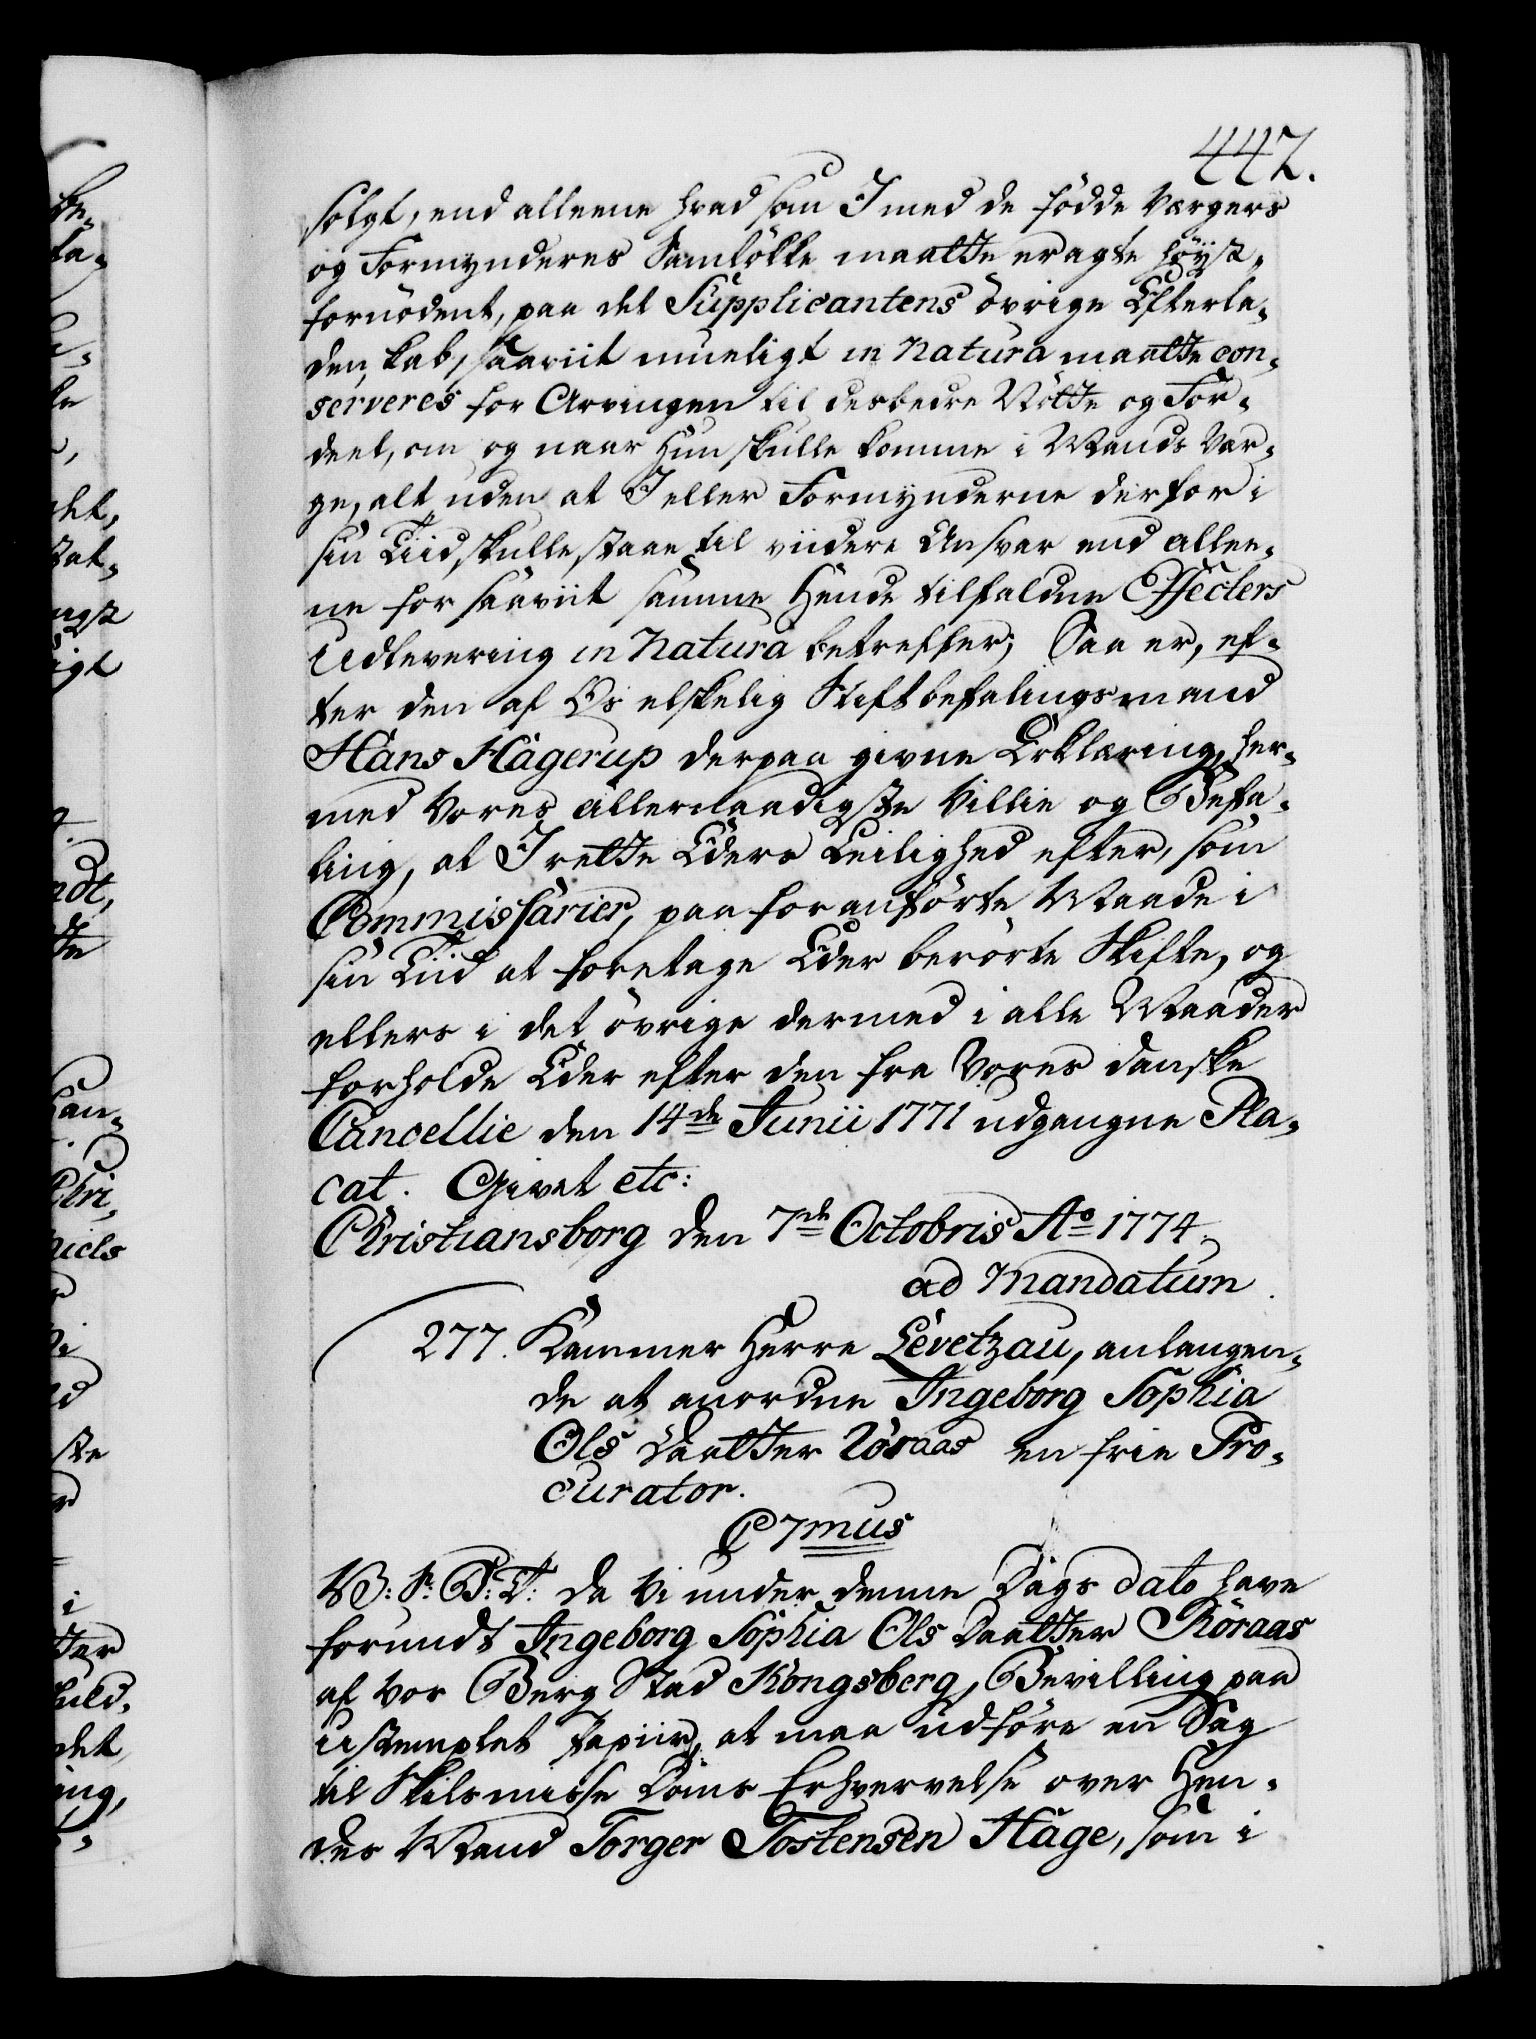 442.
solgt, end alleene hvad som I med de fødde Værgers
og Formynderes Samtøkke maatte eragte høyst-
fornødent, paa det Supplicantens øvrige Efterla-
denskab, saaviit mueligt in Natura maatte con-
serveres for Arvingen til desbedre Nøtte og For-
deel, om og naar Hun skulle komme i Mands Vær-
ge, alt uden at I eller Formynderne derfor i
sin Tiid skulle staae til viidere Ansvar end allee-
ne for saaviit samme Hende tilfaldne Effecters
Udlevering in Natura betreffer; Saa er, ef-
ter den af Os elskelig Stiftbefalingsmand
Hans Hagerup derpaa givne Erklæring, her-
med Vores allernaadigste Villie og Befa-
ling, at I rette Eders Leilighed efter, som
Commissarier, paa foranførte Maade i
sin Tiid at foretage Eder berørte Skifte, og
ellers i det øvrige dermed i alle Maader
forholde Eder efter den fra Vores danske
Cancellie den 14de Junii 1771 udgangne Pla-
cat. Givet etc:
Christiansborg den 7de Octobris Ao 1774.
ad Mandatum
277. Kammer Herre Levetzau, anlangen-
de at anordne Ingeborg Sophia
Ols Daatter Röraas en frie Pro-
curator.
C 7mus
V: S: G: T: da Vi under denne Dags dato have
forundt Ingeborg Sophia Ols Daatter Röraas
af Vor Berg Stad Kongsberg, Bevilling paa
Ustemplet Papiir, at maa udføre en Sag
til Skilsmisse Doms Erhvervelse over Hen-
des Mand Torger Tostensen Hage, som i